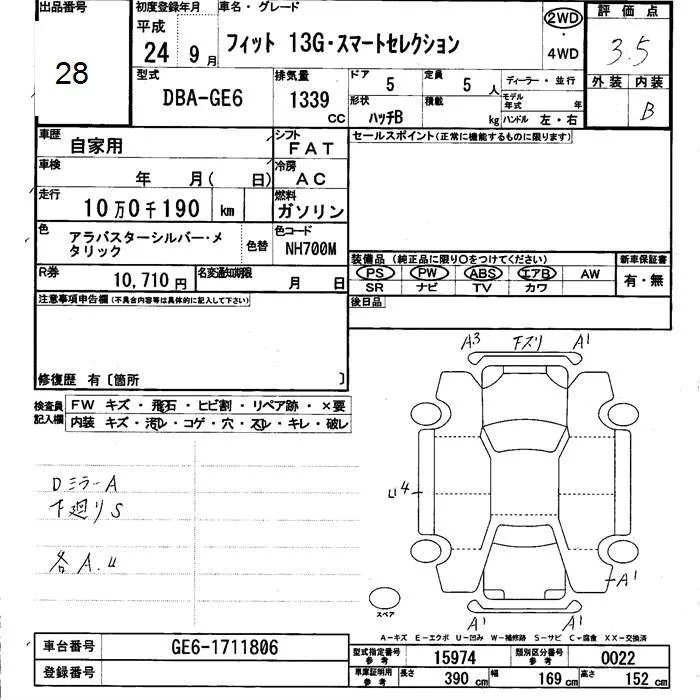 出品番号 28
初度登録年月 平成 24年 9月
車名・グレード フィット 13G・スマートセレクション
2WD・4WD
評価点 3.5
外装 内装 B
型式 DBA-GE6
排気量 1339 CC
ドア 5
定員 5人
ディーラー・並行
形状 ハッチB
積載 kg
モデル年式 年
ハンドル 左・右
車歴 自家用
シフト FAT
セールスポイント(正常に機能するものに限ります)
車検 年 月( 日)
冷房 AC
走行 10万0千190 km
燃料 ガソリン
色 アラバスターシルバー・メタリック
色替
色コード NH700M
装備品 (純正品に限り○をつけてください)
新車保証書
PS PW ABS エアB AW
有・無
SR ナビ TV カワ
R券 10,710円
名変通知期限 月 日
後日品
注意事項申告欄(不具合内容等は具体的に記入して下さい)
修復歴 有〔箇所 〕
検査員記入欄
FW キズ・飛石・ヒビ割・リペア跡・×要
内装 キズ・汚レ・コゲ・穴・スレ・キレ・破レ
A3 下ズリ A1
Dミラー A
下廻り S
各 A.U
U4
A1
スペア
A1 A1
A-キズ E-エクボ U-凹み W-補修跡 S-サビ C-腐食 XX-交換済
車台番号 GE6-1711806
型式指定番号 参考 15974
類別区分番号 参考 0022
登録番号
車庫証明用 参考 長さ 390cm 幅 169cm 高さ 152cm